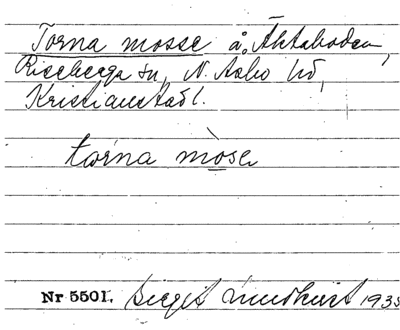 Torna mosse å. Åktaboden,
Riseberga sn, N. Åsbo hd,
Kristianstads l.
torna mòse
Nr 5501. Birgit Lundkvist 1935